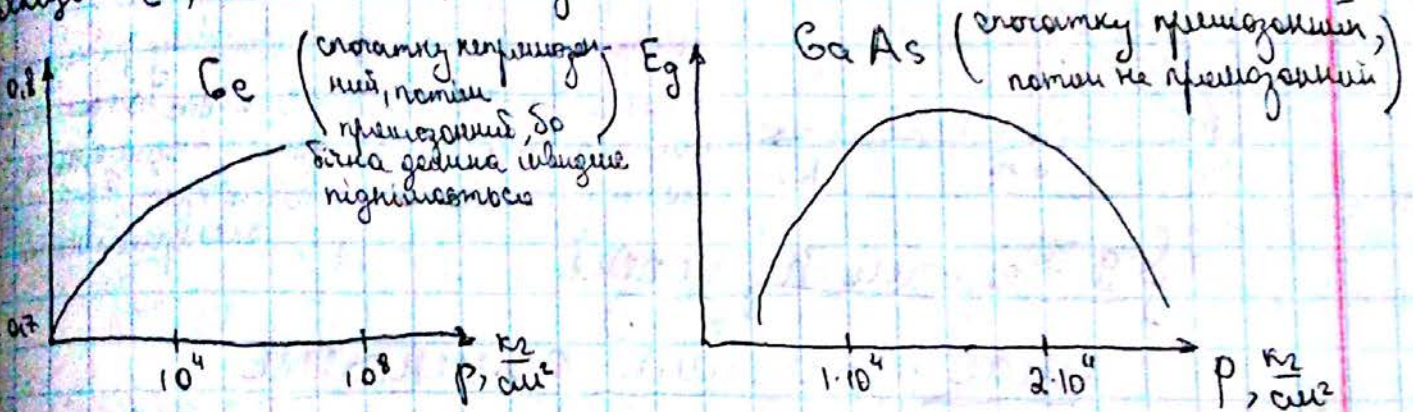 0,8
Ge (спочатку непрямозон-
ний, потім
прямозонний, бо
бічна долина швидше
піднімається)
0,7
10⁴ 10⁸ P, кг/см²
Eg
GaAs (спочатку прямозонний,
потім не прямозонний)
1·10⁴ 2·10⁴ P, кг/см²